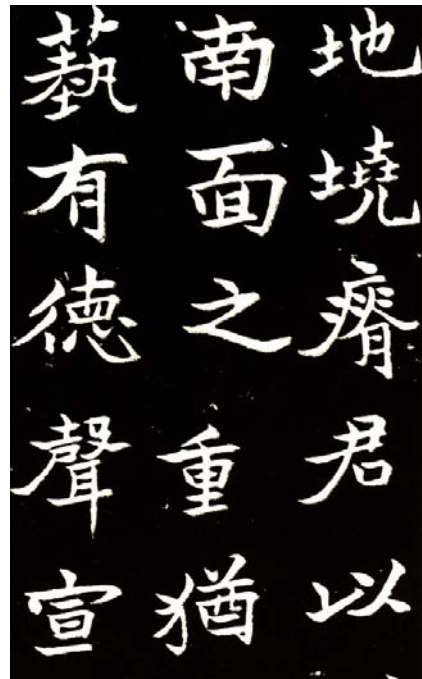 地墝瘠君以
南面之重猶
藝有德聲宣